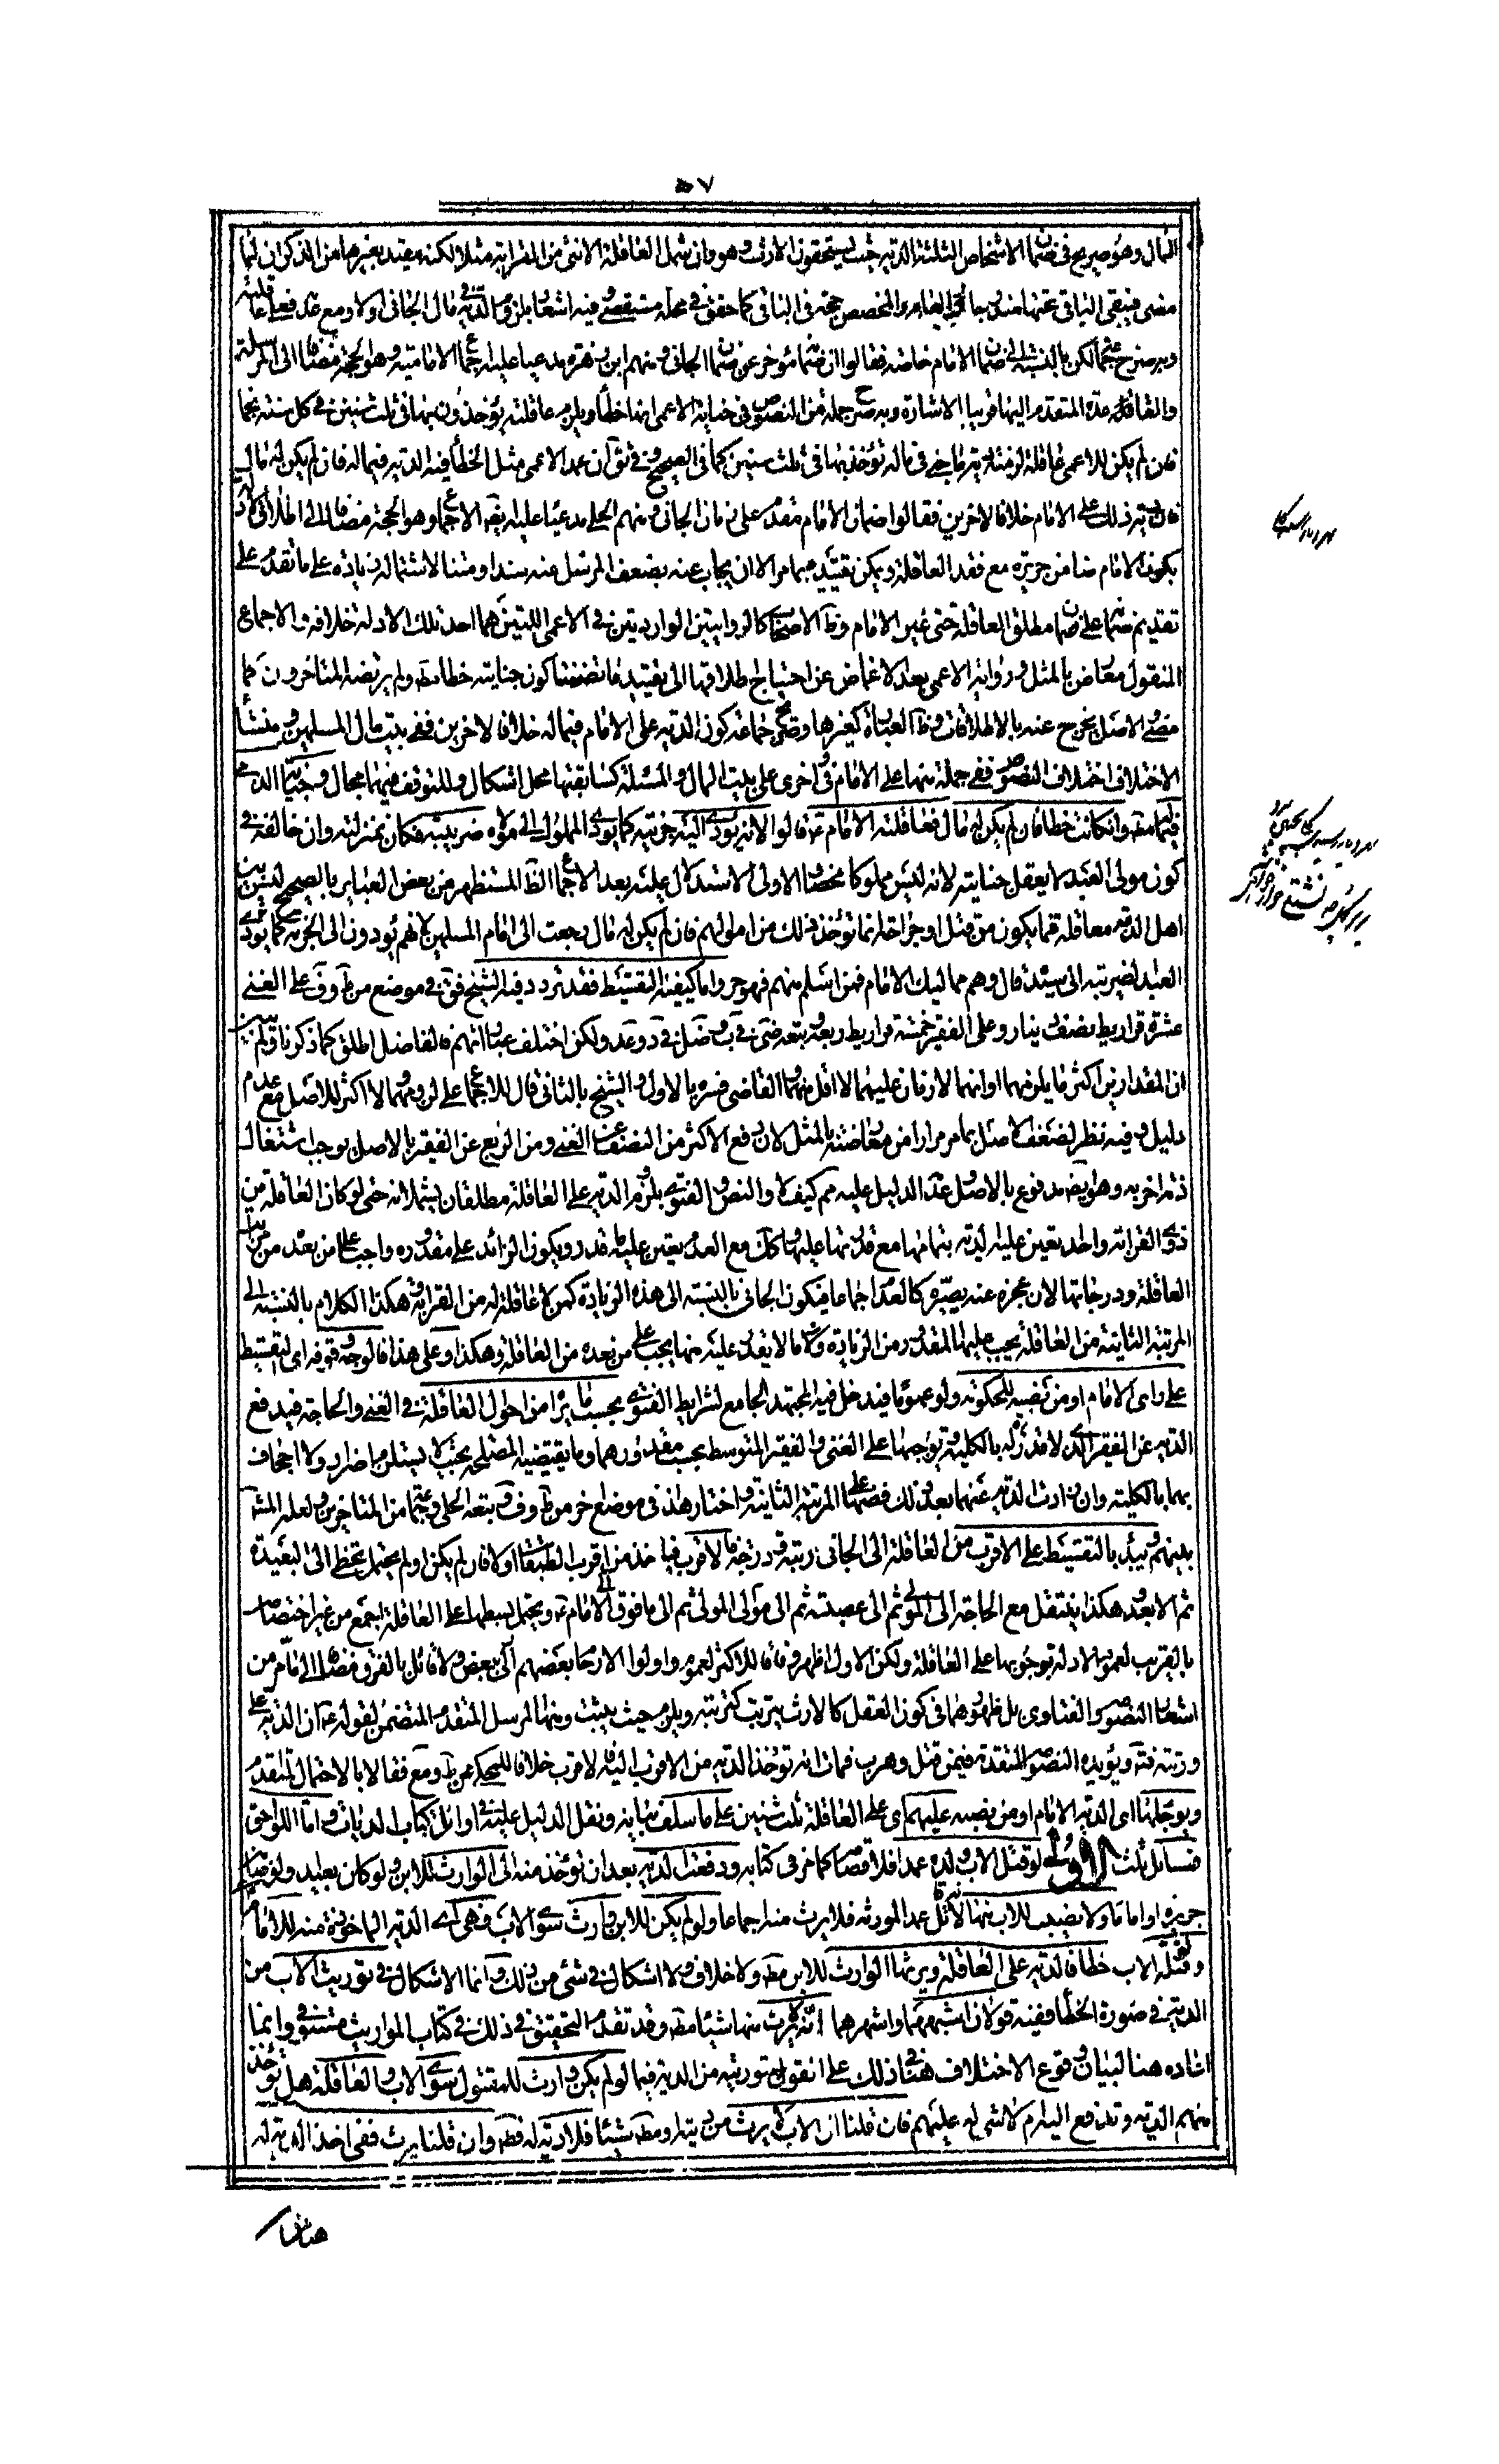 ٥٧
المال وهو صريح في ضمان الاشخاص الثلثة الدية حيث يستحقون الارث وهو وان شمل العاقلة الانثى من القرابة مثلا لكنه مقيد بغيرها من الذكران لما
مضى فيبقى الباقي تحتها مندرجا العام المخصص حجة في الباقي كما حقق في محله مستقصى وفيه اشعار بلزوم الدية في مال الجاني اولا ومع عدمه فعلى عاقلته
وبه صرح جماعة لكن بالنسبة الى ضمان الامام خاصة فقالوا ان ضمانه مؤخر عن ضمان الجاني ومنهم ابن زهرة مدعيا عليه اجماع الامامية وهو الحجة مضافا الى المرسلة
والمتقدم اليها قريبا الاشارة وبه صرح جملة من النصوص في جناية الاعمى انها خطأ ويلزم عاقلته يؤخذون بها في ثلث سنين في كل سنة نجما
فان لم يكن للاعمى عاقلة لزمته دية ما جنى في ماله تؤخذ بها في ثلث سنين كما في الصحيح وفي ثق ان عمد الاعمى مثل الخطأ فيه الدية في ماله فان لم يكن له مال
فان دية ذلك على الامام خلافا لاخرين فقالوا ضمان الامام مقدم على ضمان الجاني ومنهم الحلي مدعيا عليه الاجماع وهو الحجة مضافا الى اطلاق الادلة
بكون الامام ضامن جريرة مع فقد العاقلة ويمكن تقييده بما مر الا ان يجاب عنه بضعف المرسل منه سندا ومتنا لاشتماله زيادة على ما تقدم على
تقديم ضمانه على ضمان مطلق العاقلة حتى غير الامام وظ الاصحاب كالروايتين الواردتين في الاعمى اللتين هما احد تلك الادلة خلافه والاجماع
المنقول معارض بالمثل ورواية الاعمى بعد الاغماض عن احتياج اطلاقها الى تقييد ما تضمنتا كون جنايته خطأ مط ولم يرتضه المتاخرون كما
مضى الاصل يخرج عنه بالاطلاقات وظ العبارة كغيرها وصريح جماعة كون الدية على الامام في ماله خلافا لاخرين ففي بيت مال المسلمين ومنشأ
الاختلاف اختلاف النصوص ففي جملة منها على الامام وفي اخرى على بيت المال والمسئلة كسابقتها محل اشكال وللتوقف فيهما مجال وجناية الذمي
في ماله مط وان كانت خطأ فان لم يكن له مال فعاقلته الامام ع قالوا لانه يؤدي اليه جزيته كما يؤدي المملوك الى مولاه ضريبته فكان بمنزلته وان خالفه في
كون مولى العبد لا يعقل جنايته لانه ليس مملوكا محضا والاولى الاستدلال عليه بعد الاجماع الظ المستظهر من بعض العباير بالصحيح ليس بين
اهل الذمة معاقلة فيما يكون من قتل او جراحة انما تؤخذ ذلك من اموالهم فان لم يكن له مال رجعت الى امام المسلمين لانهم يؤدون الى الجزية كما يؤدي
العبد الضريبة الى سيده قال وهم مماليك الامام فمن اسلم منهم فهو حر واما كيفية التقسيط فقد تردد فيه الشيخ فق في موضع من ط وف على الغني
عشرة قراريط نصف دينار وعلى الفقير خمسة قراريط ربعه وتبعه ضى في ب وضل في د وعد ولكن اختلف عباراتهم فالفاضل اطلق كما ذكرنا ولم يبين
ان المقدارين اكثر ما يلزمهما او انهما لازمان عليهما لا اقل منهما والقاضي فسره بالاول والشيخ بالثاني قال للاجماع على لزومهما لا اكثر للاصل مع عدم
دليل وفيه نظر لضعف الاصل بما مر مرارا من معارضته بالمثل لان دفع الاكثر من النصف عن الغني ومن الربع عن الفقير بالاصل يوجب اشتغال
ذمة اخر به وهو ايض مدفوع بالاصل عدم الدليل عليه مم كيف لا والنص والفتوى بلزوم الدية على العاقلة مطلقان يشملانه حتى لو كان العاقلة من
ذوي القرابة واحد تعين عليه الدية بتمامها مع قدرته عليها وكك مع العدم يتعين عليه ما قدر ويكون الزائد على مقدوره واجب على من بعد من مراتب
العاقلة ودرجاتها لان عجزه عنه يصيره كالعدم اجماعا فيكون الجاني بالنسبة الى هذه الزيادة كمن لا عاقلة له من القرابة وهكذا الكلام بالنسبة الى
المرتبة الثانية من العاقلة يجب عليها المقدور من الزيادة واما ما لا يقدر عليه منها يجب على من بعده من العاقلة وهكذا وعلى هذا فالوجه وقوفه اي التقسيط
على راى الامام او من نصبه للحكومة ولو عموما فيدخل فيه المجتهد الجامع لشرايط الفتوى بحسب ما يراه من احوال العاقلة في الغنى والحاجة فيدفع
الدية عن الفقير الذي لا قدرة له بالكلية وتوجبها على الغني والفقير المتوسط بحسب مقدورهما وما يقتضيه المصلحة بحيث لا يستلزم اضرار ولا اجحاف
بهما بالكلية وان زادت الدية عنهما بعد ذلك فضها على المرتبة الثانية واختار هذا في موضع اخر من ط وف وتبعه الحلي وعامة من المتاخرين ولعله المشهور
بينهم ويبدأ بالتقسيط على الاقرب من العاقلة الى الجاني رتبة ودرجة فالاقرب فياخذ من اقرب الطبقات اولا فان لم يكن او لم يحتمل تخطى الى البعيدة
ثم الابعد وهكذا ينتقل مع الحاجة الى المولى ثم الى عصبته ثم الى مولى المولى ثم الى ما فوق الى الامام ع ويحتمل بسطها على العاقلة اجمع من غير اختصاص
بالقريب لعموم الادلة بوجوبها على العاقلة ولكن الاول اظهر وفاقا للاكثر لعموم واولوا الارحام بعضهم اولى ببعض ولا قائل بالفرق مضافا الى ما مر من
اشعار النصوص والفتاوى بل ظهورهما في كون العقل كالارث يترتب كترتبه ويلزم حيث يثبت ومنها المرسل المتقدم المتضمن لقوله ع ان الدية على
ورثته فته ويؤيده النصوص المتقدمة فيمن قتل وهرب فمات انه تؤخذ الدية من الاقرب اليه فالاقرب خلافا للمحكي عن ط ومع فقالا بالاحتمال المتقدم
ويؤجلها اى الدية الامام او من نصبه عليهم اى على العاقلة ثلث سنين على ما سلف بيانه ونقل الدليل عليه في اوائل كتاب الديات واما اللواحق
فمسائل ثلث الاولى لو قتل الاب ولده عمدا فلا قصاص كما مر في كتابه ودفعت الدية بعد ان تؤخذ منه الى الوارث للابن ولو كان بعيدا ولو ضامن
جريرة او اماما ولا نصيب للاب منها لانه قاتل عمد المورثه فلا يرث منه اجماعا ولو لم يكن للابن وارث سوى الاب فهي اي الدية الماخوذة منه للامام
ولو قتله الاب خطأ فالدية على العاقلة ويرثها الوارث للابن مط ولا خلاف ولا اشكال في شئ من ذلك وانما الاشكال في توريث الاب من
الدية في صورة الخطأ ففيه قولان اشبههما واشهرهما انه لا يرث منها شيئا مط وقد تقدم التحقيق في ذلك في كتاب المواريث مستوفى وانما
اشاده هنا لبيان وقوع الاختلاف هنا في ذلك على القول بتوريثه من الدية فيما لو لم يكن وارث للمقتول سوى الاب والعاقلة هل تؤخذ
منهم الدية وتدفع اليه ام لا شئ له عليهم فان قلنا ان الاب لا يرث من ديته او مط شيئا فلا دية له قطه وان قلنا يرث ففي اخذ الدية له